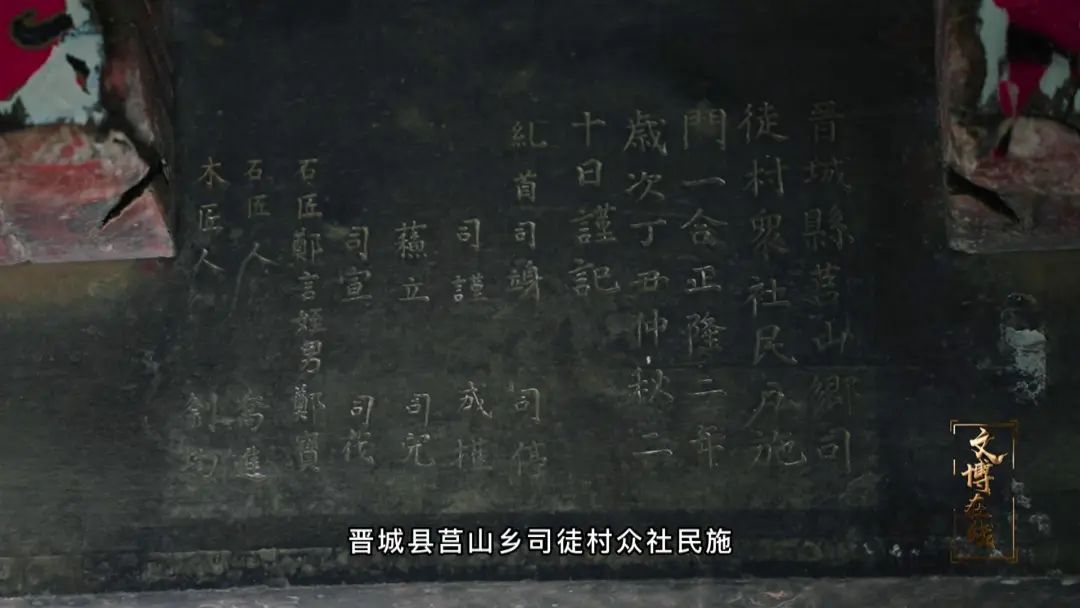 晋城縣莒山鄉司
徒村眾社民户施
門一合正隆二年
歲次丁丑仲秋二
十日謹記
糺首司竧 司倚
司謹 成權
蘓立 司兒
司宣 司筏
石匠鄭言姪男鄭寶
石匠人 喬進
木匠人 劉
晋城县莒山乡司徒村众社民施
文博在线